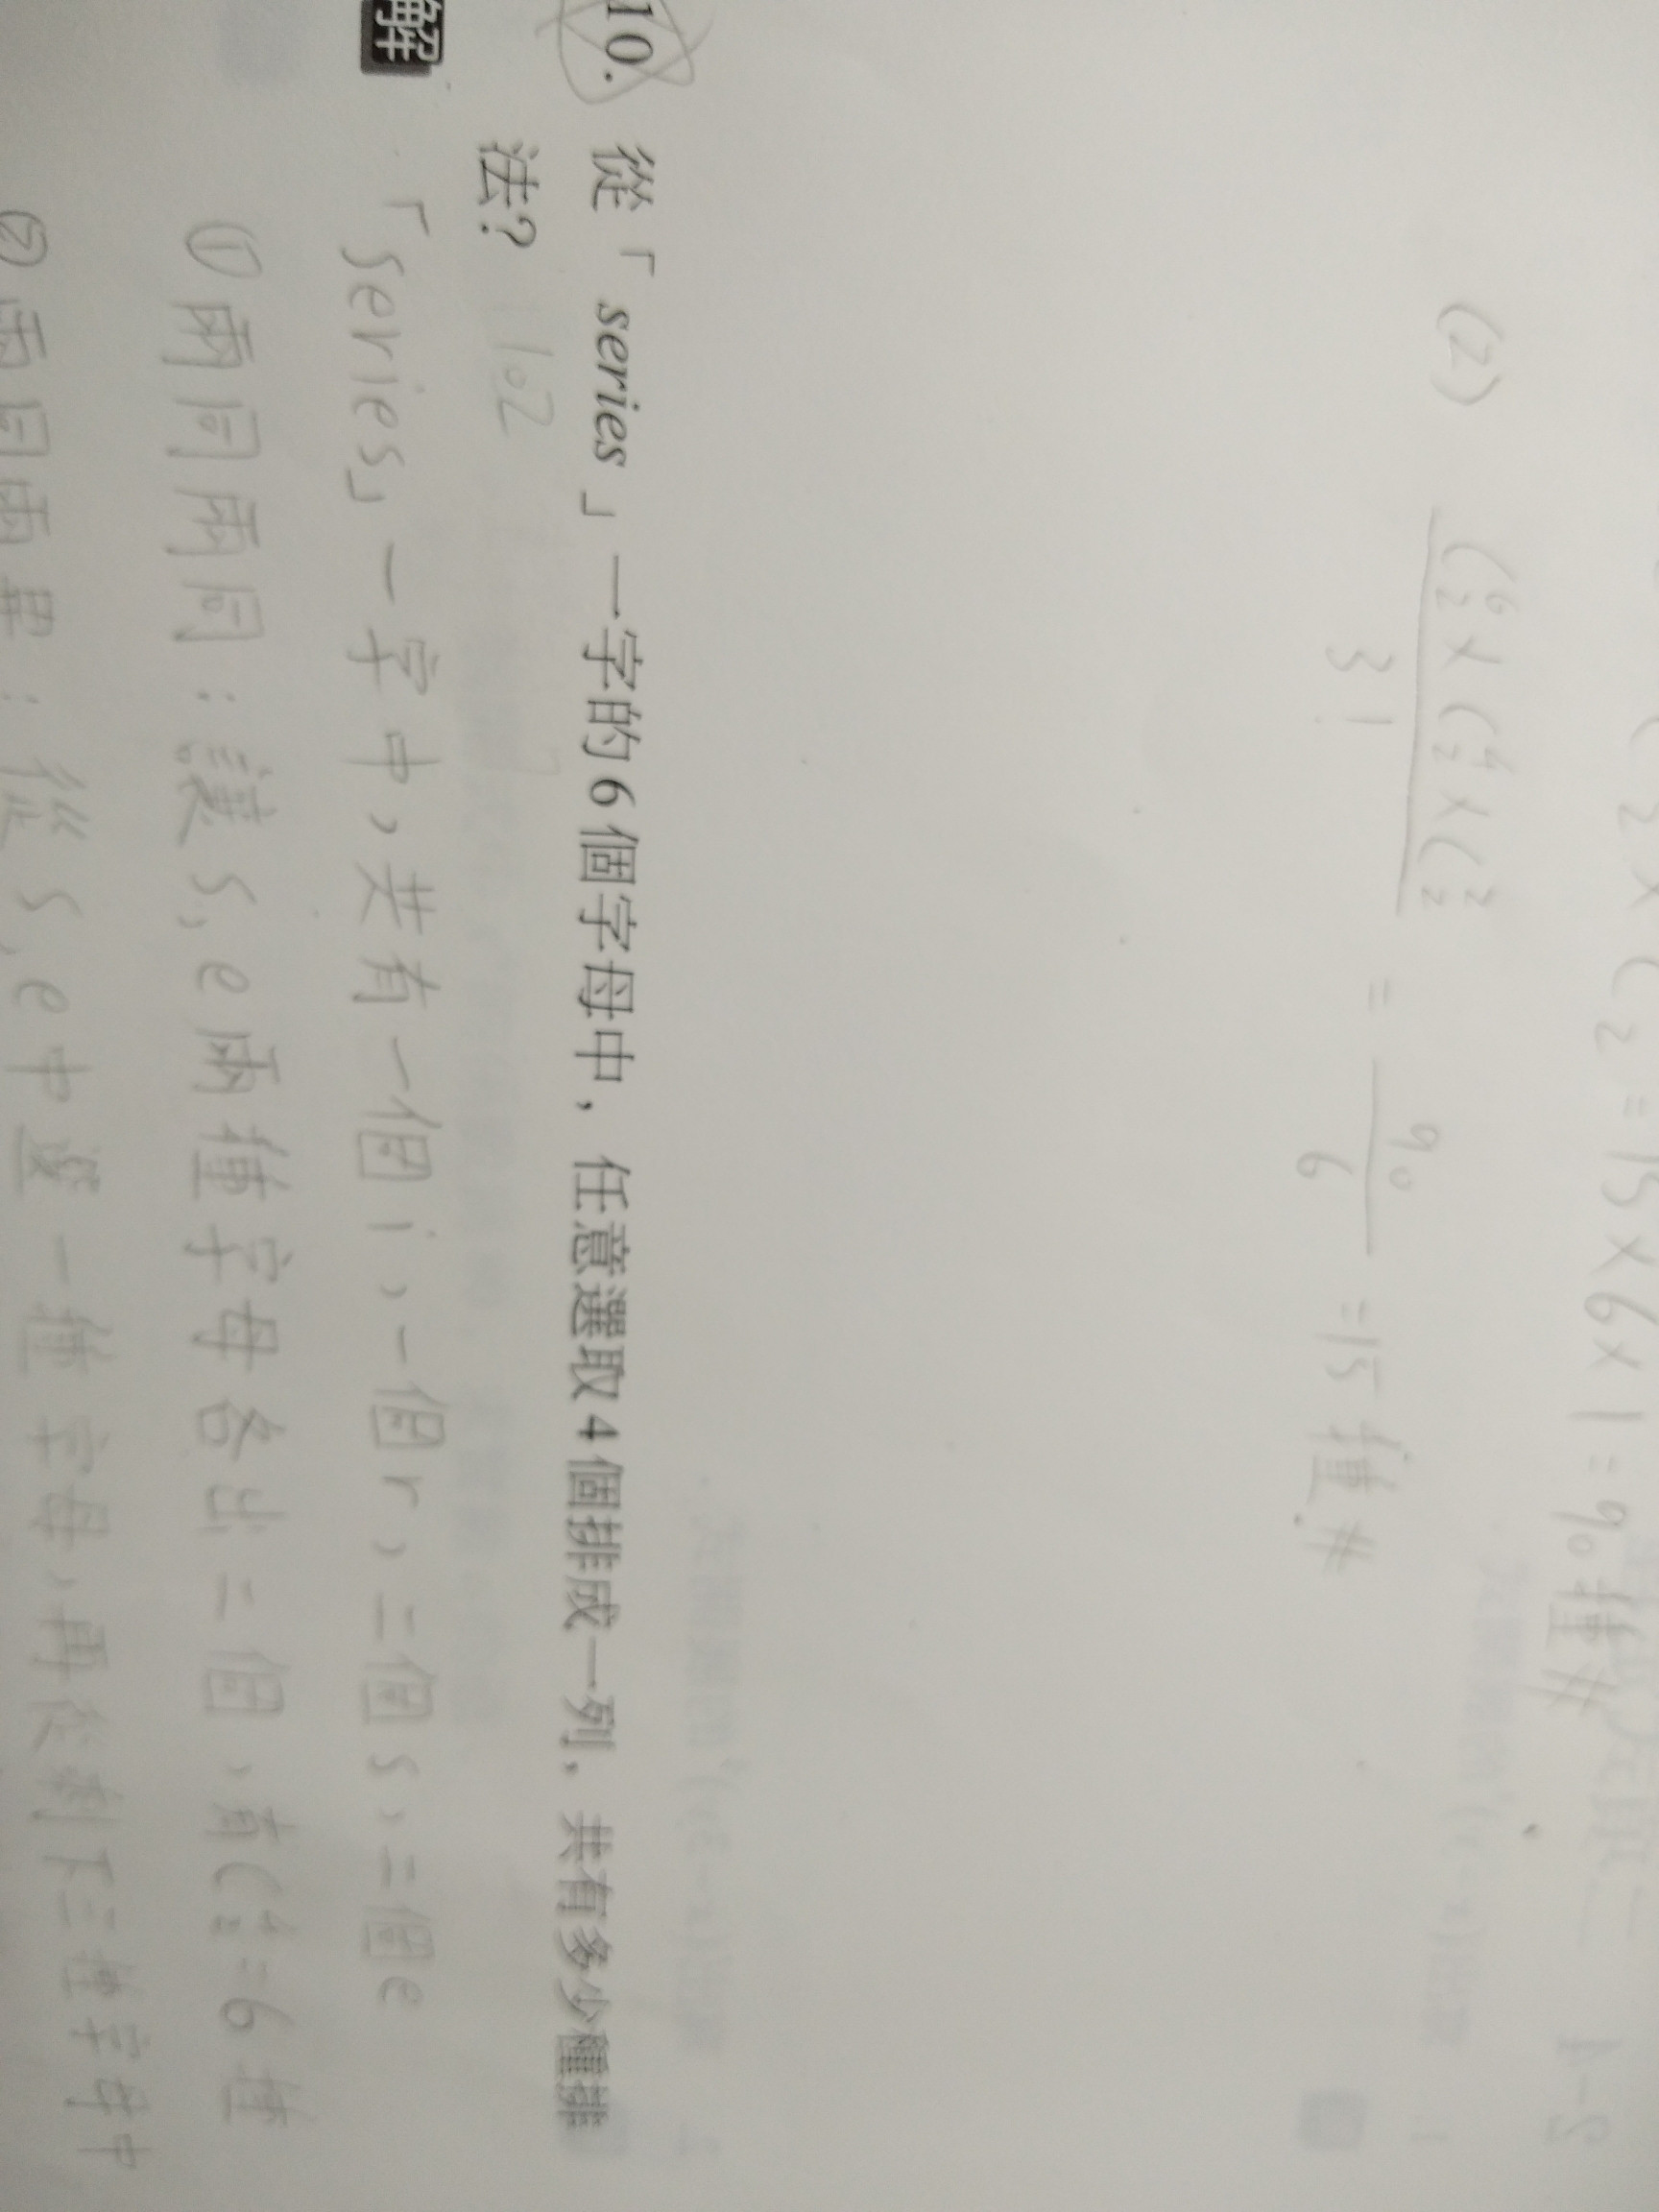 (2) C⁶₂×C⁴₂×C²₂ / 3! = 90/6 = 15種#
10. 從「series」一字的6個字母中，任意選取4個排成一列，共有多少種排
法? 102
解 「series」一字中，共有一個i，一個r，二個s，二個e
①兩同兩同：讓s,e兩種字母各出二個，有C⁴₂=6種
②兩同兩異：從s,e中選一種字母，再從剩下三種字母中